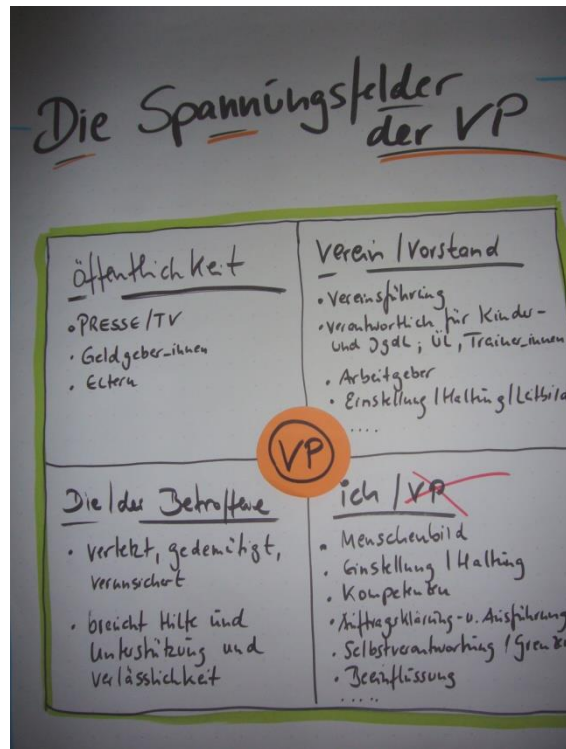 Die Spannungsfelder
der VP
öffentlichkeit
• PRESSE/TV
• Geldgeber_innen
• Eltern
Verein / Vorstand
• Vereinsführung
• Verantwortlich für Kinder-
und Jgdl; ÜL, Trainer_innen
• Arbeitgeber
• Einstellung / Haltung / Leitbild
....
VP
Die/der Betroffene
• verletzt, gedemütigt,
verunsichert
• braucht Hilfe und
Unterstützung und
Verlässlichkeit
ich / VP
• Menschenbild
• Einstellung / Haltung
• Kompetenzen
• Auftragsklärung- u. Ausführung
• Selbstverantwortung / Grenzen
• Beeinflussung
....